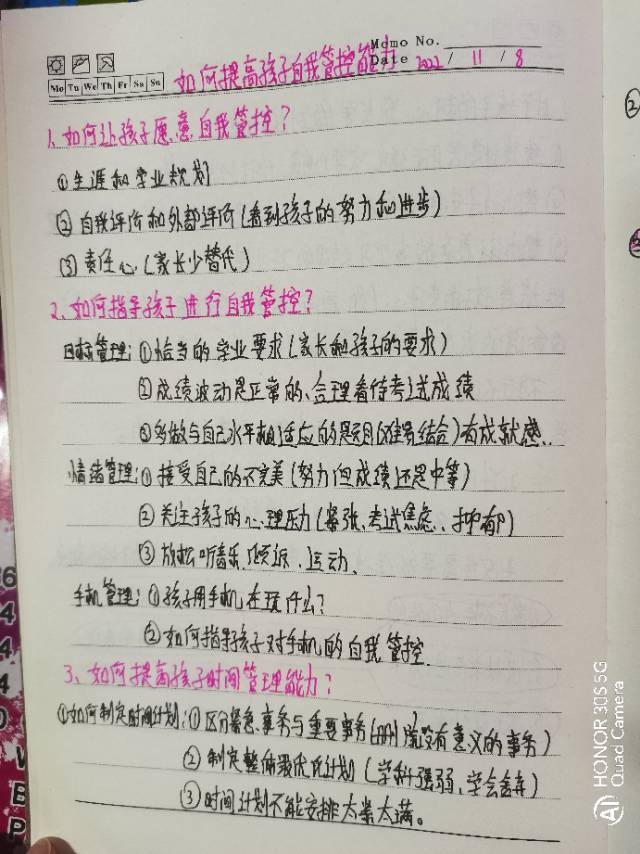 Memo No.
Mo Tu We Th Fr Sa Su
Date 2022 / 11 / 8
如何提高孩子自我管控能力
1、如何让孩子愿意自我管控?
①生涯和学业规划
②自我评价和外部评价(看到孩子的努力和进步)
③责任心(家长少替代)
2、如何指导孩子进行自我管控?
目标管理:①恰当的学业要求(家长和孩子的要求)
②成绩波动是正常的、合理看待考试成绩
③多做与自己水平相适应的题目(难易结合)有成就感..
情绪管理:①接受自己的不完美(努力但成绩还是中等)
②关注孩子的心理压力(紧张、考试焦虑、抑郁)
③放松听音乐、倾诉、运动、
手机管理:①孩子用手机在玩什么?
②如何指导孩子对手机的自我管控.
3、如何提高孩子时间管理能力?
①如何制定时间计划:①区分紧急事务与重要事务(删减没有意义的事务)
②制定整体最优化计划(学科强弱,学会舍弃)
③时间计划不能安排太紧太满。
HONOR 30S 5G
Quad Camera